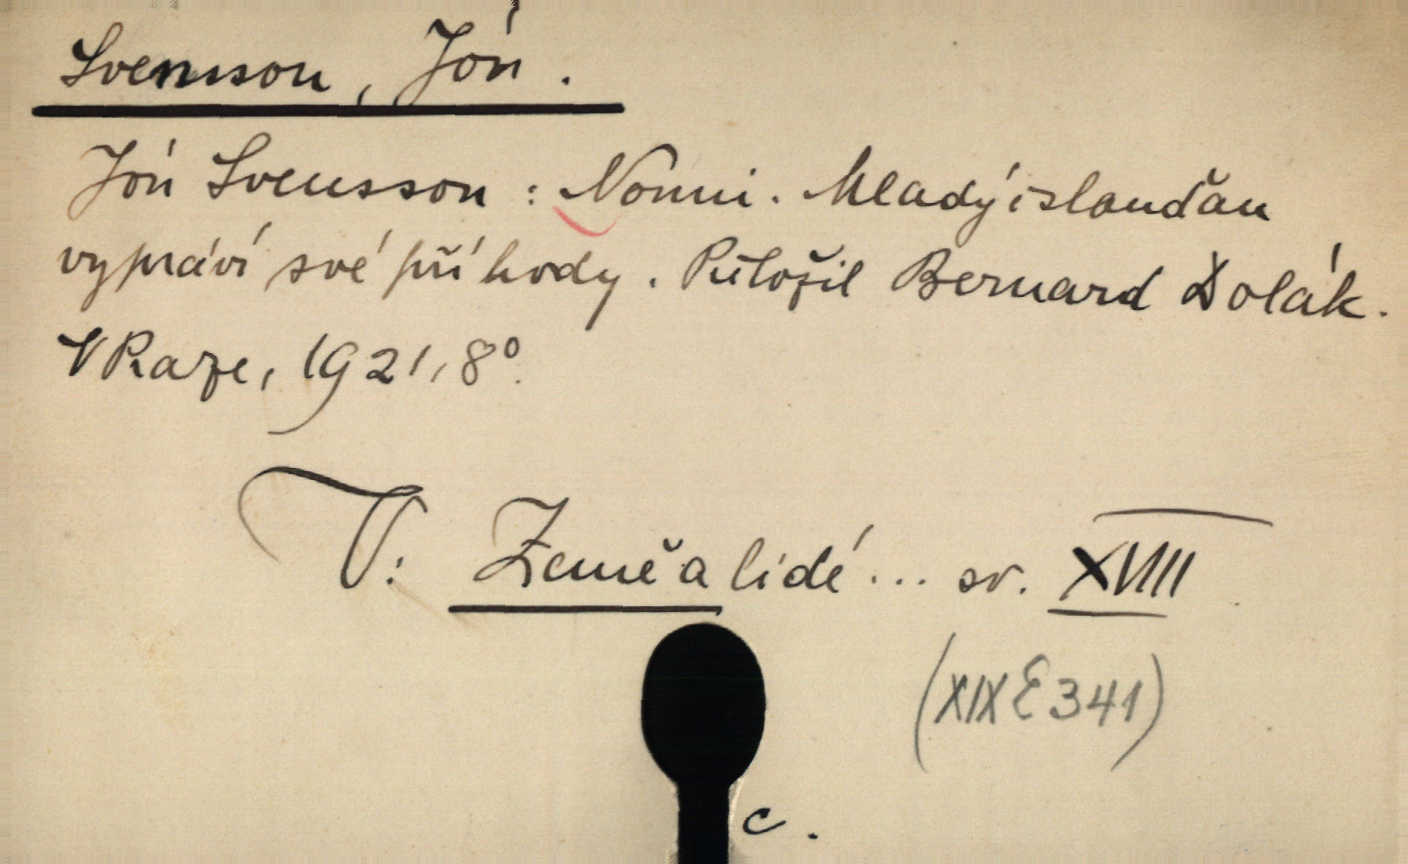 Svensson, Jón.
Jón Svensson: Nonni. Mladý islanďan
vypráví své příhody. Přeložil Bernard Dolák.
V Praze, 1921, 8°.
V: Země a lidé... sv. XVIII
(XIX E 341)
c.